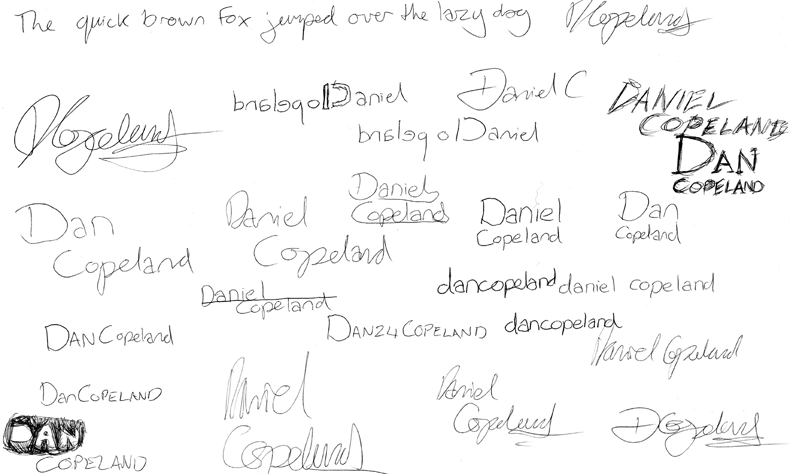 The quick brown fox jumped over the lazy dog
DCopeland
Daniel
Daniel C
DANIEL
COPELAND
DCopeland
Daniel
DAN
COPELAND
Daniel
Copeland
Dan
Copeland
Daniel
Copeland
Daniel
Copeland
Dan
Copeland
dancopeland
daniel copeland
Daniel
Copeland
DAN24COPELAND
dancopeland
DANCopeland
Daniel Copeland
DanCOPELAND
Daniel
Copeland
Daniel
Copeland
DCopeland
DAN
COPELAND